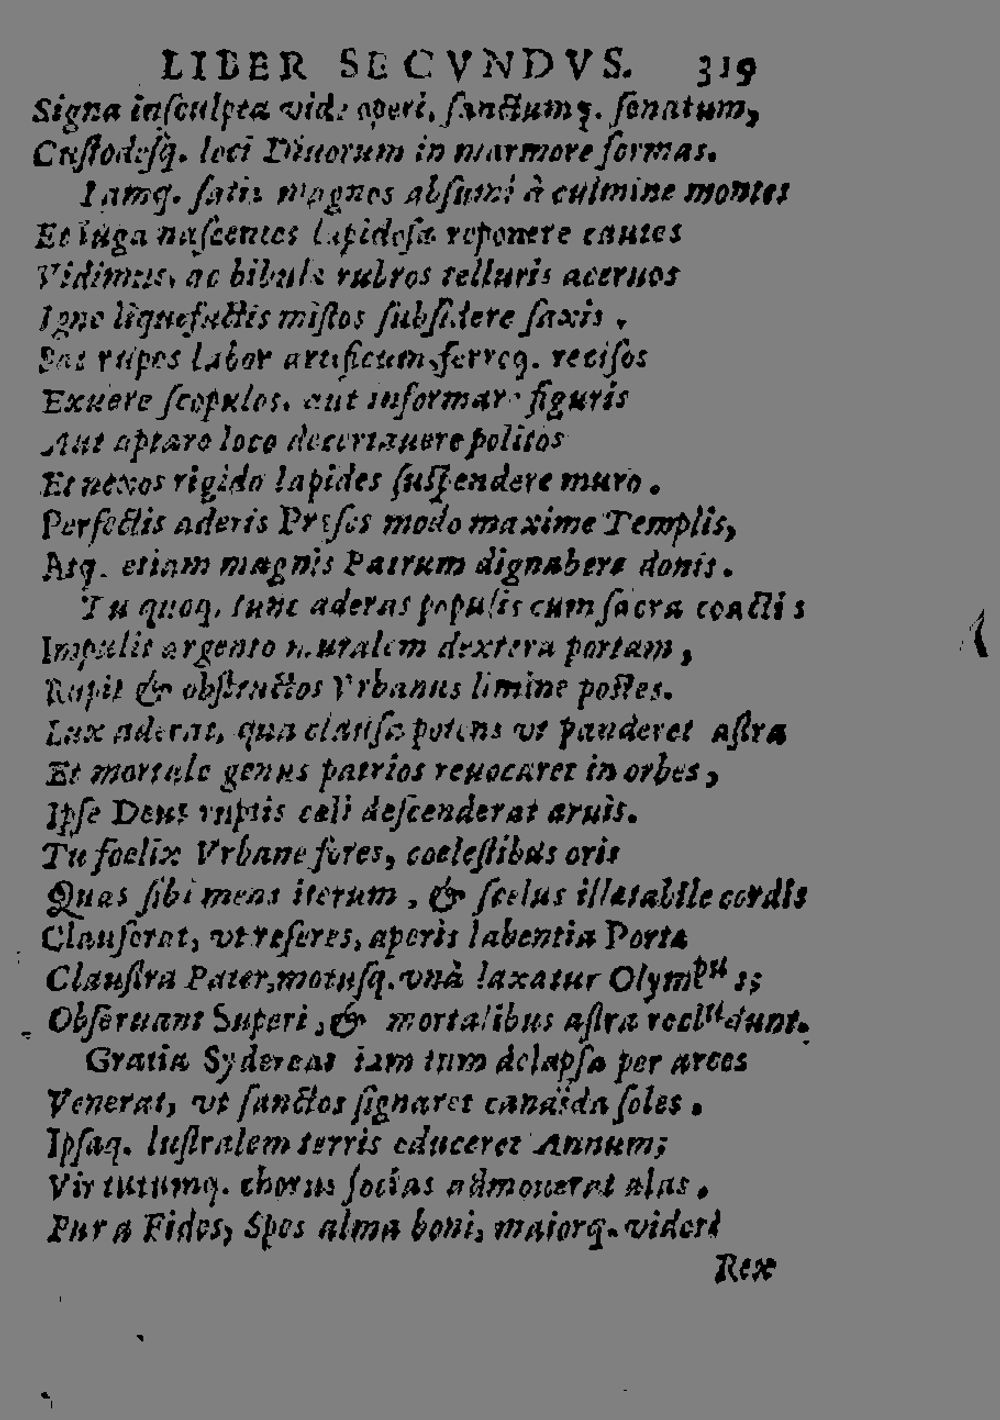 LIBER SECVNDVS. 319
Signa insculpta vide operi, sanctumq. senatum,
Custodesq. loci Diuorum in marmore formas.
Iamq. satis magnos absumi à culmine montes
Et iuga nascentes lapidosa reponere cautes
Vidimus, ac bibula rubros telluris aceruos
Igne liquefactis mistos subsidere saxis.
rupes labor artificum, ferreq. recisos
Exuere scopulos, aut informare figuris
Aut aptare loco decertauere politos
Et nexos rigido lapides suspendere muro.
Perfectis aderis Preses modo maxime Templis,
Atq. etiam magnis Patrum dignabere donis.
Tu quoq. tunc aderas populis cum sacra coactis
Impulit argento muralem dextera portam,
Rupit & obstructos Vrbanus limine postes.
Lux aderat, qua clausa potens vt panderet astra
Et mortale genus patrios reuocaret in orbes,
Ipse Deus ruptis celi descenderat aruis.
Tu foelix Vrbane fores, coelestibus oris
Quas sibi mens iterum, & scelus illatabile cordis
Clauserat, vt reseres, aperis labentia Porta
Claustra Pater, motusq. vnà laxatur Olympus;
Obseruant Superi, & mortalibus astra recludunt.
Gratia Sydereas iam tum delapsa per arces
Venerat, vt sanctos signaret candida soles.
Ipsaq. lustralem terris educeret Annum;
Virtutumq. chorus socias admouerat alas.
Pura Fides, Spes alma boni, maiorq. videri
Rex